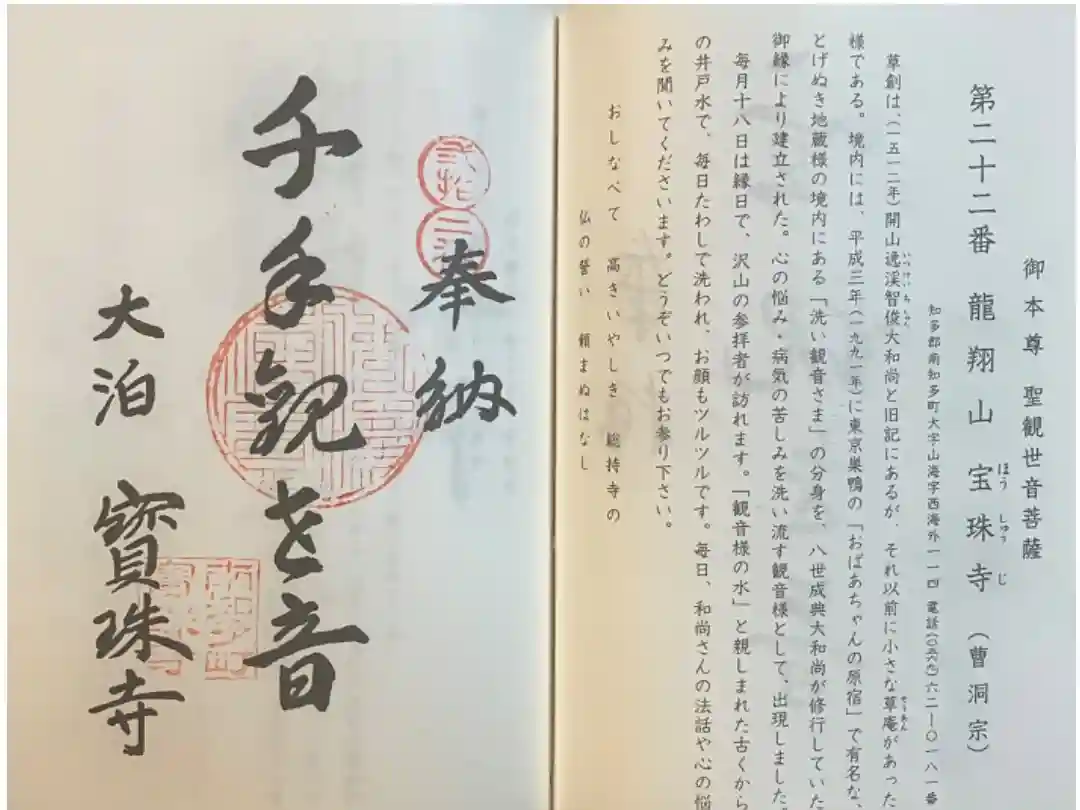 御本尊　聖観世音菩薩
第二十二番　龍翔山　宝珠寺（曹洞宗）
ほう　しゅう　じ
知多郡南知多町大字山海字西海外一一四　電話(〇五六九)六二ー〇一八一番
草創は、（一五一二年）開山逸渓智俊大和尚と旧記にあるが、それ以前に小さな草庵があった
様である。境内には、平成三年（一九九一年）に東京巣鴨の「おばあちゃんの原宿」で有名な、
とげぬき地蔵様の境内にある「洗い観音さま」の分身を、八世成典大和尚が修行していた
御縁により建立された。心の悩み・病気の苦しみを洗い流す観音様として、出現しました。
毎月十八日は縁日で、沢山の参拝者が訪れます。「観音様の水」と親しまれた古くから
の井戸水で、毎日たわしで洗われ、お顔もツルツルです。毎日、和尚さんの法話や心の悩
みを聞いてくださいます。どうぞいつでもお参り下さい。
おしなべて　高きいやしき　総持寺の
仏の誓い　頼まぬはなし
奉納
千手観世音
大泊　寶珠寺